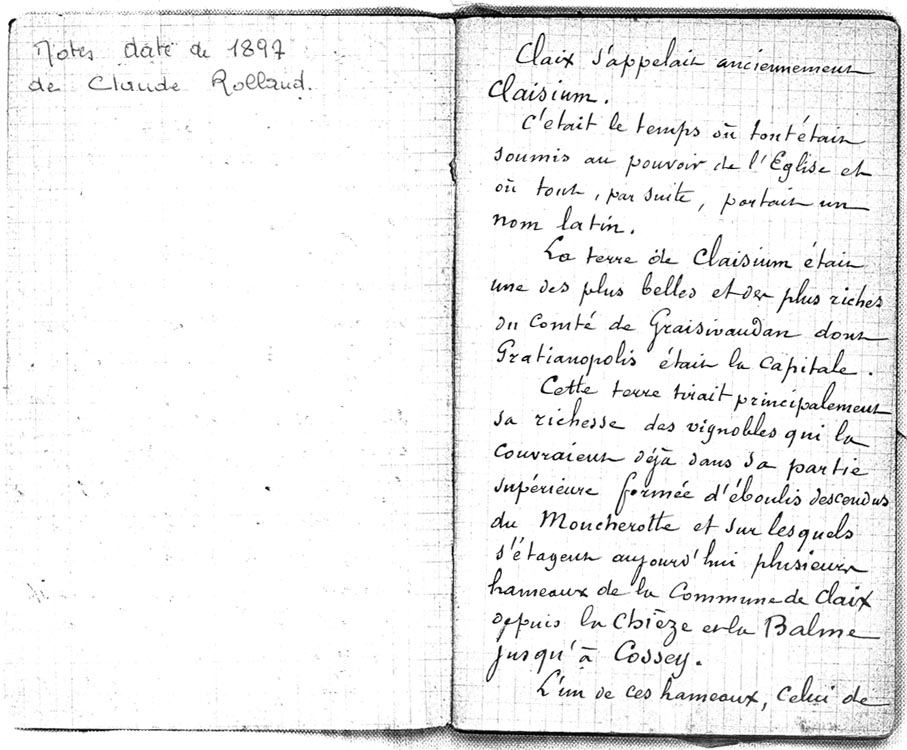 Notes daté de 1897
de Claude Rolland.
Claix s'appelait anciennement
Claisium.
C'était le temps où tout était
soumis au pouvoir de l'Eglise et
où tout, par suite, portait un
nom latin.
La terre de Claisium était
une des plus belles et des plus riches
du Comté de Graisivaudan dont
Gratianopolis était la capitale.
Cette terre tirait principalement
sa richesse des vignobles qui la
couvraient déjà dans sa partie
supérieure formée d'éboulis descendus
du Moucherotte et sur lesquels
s'étagent aujourd'hui plusieurs
hameaux de la Commune de Claix
depuis la Chièze et la Balme
jusqu'à Cossey.
L'un de ces hameaux, celui de